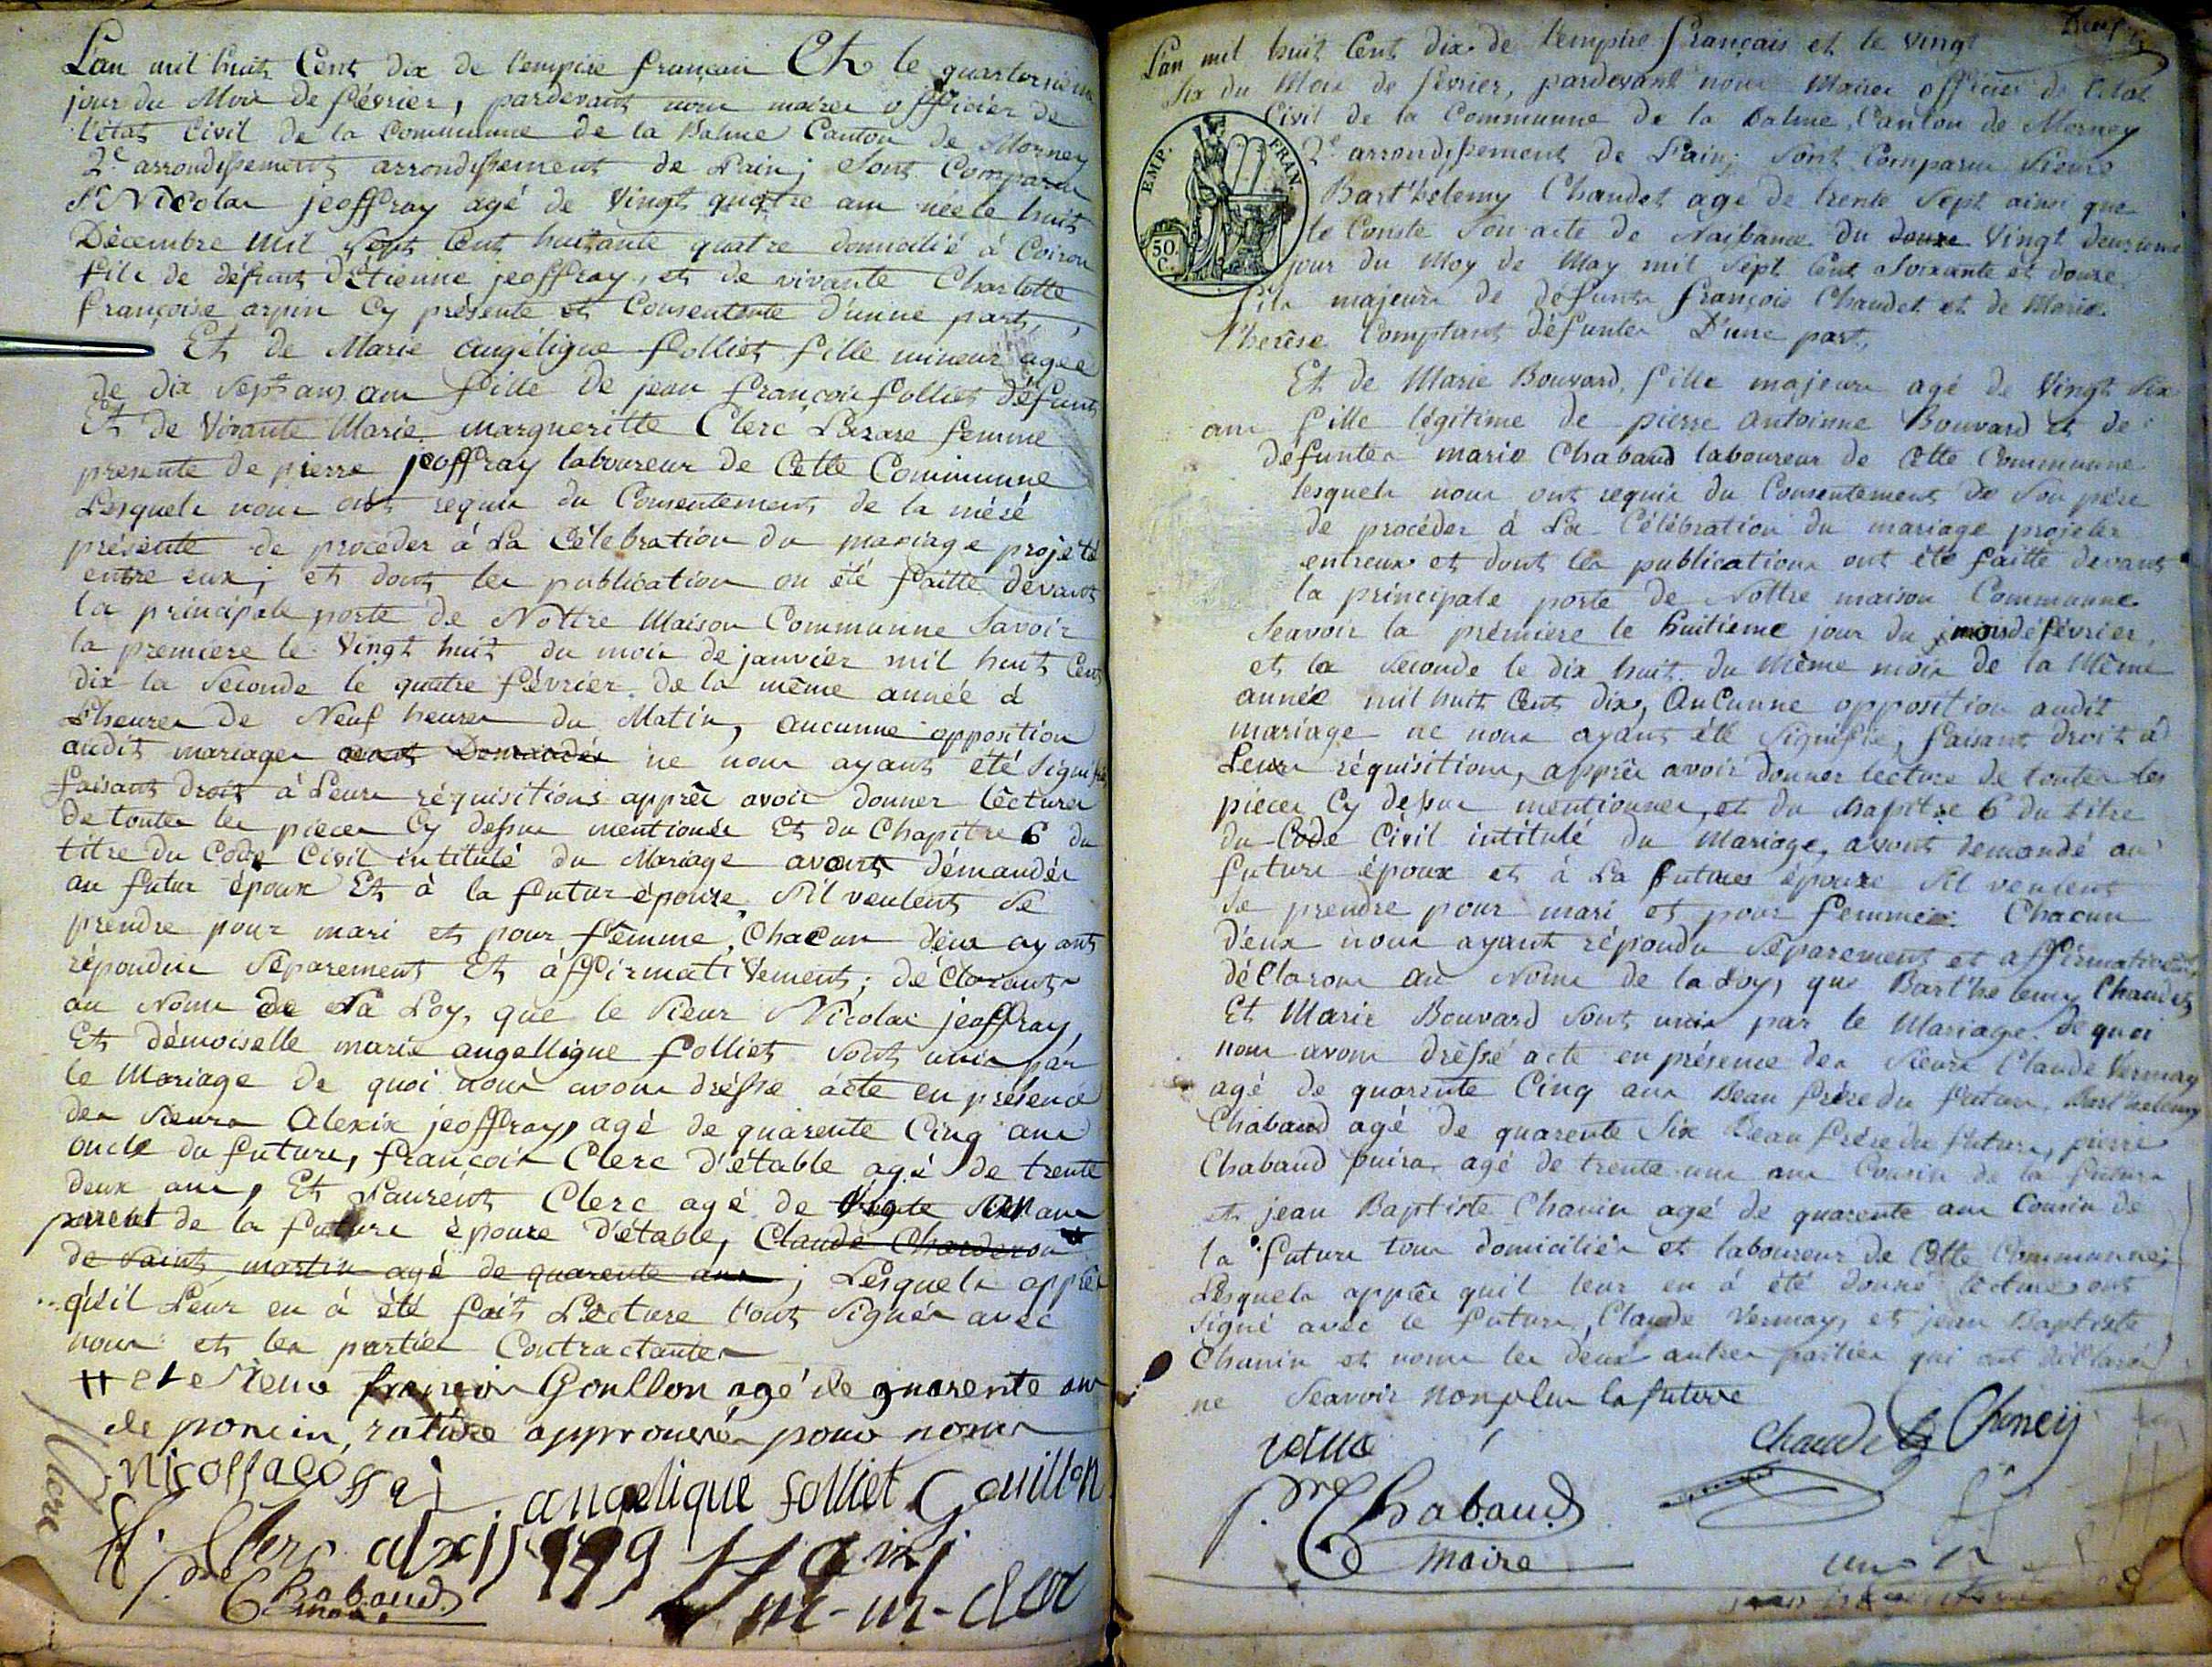 L'an mil huit Cent dix de l'empire francais Et le quatorzieme
jour du Mois de février, pardevant nous maire officier de
l'état Civil de la Communne de la Balme Canton de Morney
2e arrondissement arrondissement de Lain; Sont Comparu
Sr Nicolas jeoffray agé de Vingt quatre ans née le huit
Décembre mil sept Cent huitante quatre domicilié à Coiron
fils de défunt d'Etienne jeoffray, et de vivante Charlotte
françoise arpin Cy présente et Consentente d'unne part,
Et de Marie angélique folliet fille mineur agée
de dix Sept ans ans fille de jean françois folliet défunt
Et de Vivante Marie margueritte Clerc Lazare femme
presente de pierre jeoffray laboureur de Cette Communne
Lesquels nous ont requis du Consentement de la mére
présente de procéder à La Célebration du mariage projété
entre eux; et dont les publication on été faitte devant
la principale porte de Nottre Maison Communne Savoir
la premiere le Vingt huit du mois de janvier mil huit Cent
dix la Seconde le quatre février de la même année à
L'heures de Neuf heures du Matin, aucunne opposition
audit mariages ne nous ayant été Signifié
faisant droit à Leurs réquisitions apprês avoir donner lécture
de toutes les pieces Cy dessus mentionés Et du Chapitre 6 du
titre du Code Civil intitulé du Mariage avons démandés
au futur époux Et à la futur épouse, S'il veulent Se
prendre pour mari et pour femme, Chacun d'eux ayant
répondu Séparement Et affirmativement; déclarons
au Nom de La Loy, que le Sieur Nicolas jeoffray,
Et démoiselle marie angelligue folliet Sont unis par
le Mariage de quoi nous avons dréssé acte en présence
des Sieurs Alexis jeoffray, agé de quarente Cinq ans
oncle du future, françois Clerc d'étable agé de trente
deux ans, Et Laurent Clerc agé de ans
parent de la future épouse d'étable, Claude Charderon
de Saint martin agé de quarente ans; Lesquels apprês
qu'il Leur en à été fait Lecture l'ont Signés avec
nous et les parties Contractantes
et le Sieur françois Goullon agé de quarente ans
de poncin, rature approuvés pour nous
Nicollas angelique folliet Gouillon
Clerc alxis
Chabaud
L'an mil huit Cent dix de l'empire français et le vingt
Six du Mois de février, pardevant nous Maire officier de l'état
Civil de la Communne de la Balme, Canton de Morney
2e arrondissement de Lain; Sont Comparu Sieurs
EMP. FRAN.
50 C.
Bart'helemy Chaudet agé de trente Sept ainsi que
le Conste Son acte de Naissance du douze Vingt deuxieme
jour du Moy de May mil Sept Cent Soixante et douze
fils majeurs de défunts françois Chaudet et de Marie
therêse Comptant défuntes D'une part,
Et de Marie Bouvard, fille majeure agé de Vingt Six
ans fille légitime de pierre antoinne Bouvard et de
défuntes marie Chabaud laboureur de Cette Communne
lesquels nous ont requis du Consentement de Son pére
de procéder à La Célébration du mariage projeter
entreux et dont les publications ont été faitte devant
la principale porte de Nottre maison Communne
Seavoir la prémiere le huitieme jour du mois de février,
et la Seconde le dix huit du Même mois de la Même
année mil huit Cent dix, Aucunne opposition audit
mariage ne nous ayant été Signifié, faisant droit à
Leurs réquisitions, apprês avoir donner lecture de toutes les
pieces Cy dessus mentionnes, et du Chapitre 6 du titre
du Code Civil intitulé du Mariage, avons demandé au
future époux et à La future épouse S'il veulent
Se prendre pour mari et pour femme Chacun
d'eux nous ayant répondu Séparement et affirmativement
déClarons au Nom de la Loy, que Bart'helemy Chaudet
Et Marie Bouvard Sont unis par le Mariage de quoi
nous avons dréssé acte en présence des Sieurs Claude Vermay
agé de quarente Cinq ans Beau frére du future, Bart'helemy
Chabaud agé de quarente Six Beau frére du future, pierre
Chabaud puira agé de trente un ans Cousin de la future
et jean Baptiste Chanin agé de quarente ans Cousin de
la future tous domiciliés et laboureur de Cette Communne;
Lesquels apprês quil leur en à été donné lecture ont
Signé avec le future, Claude Vermay, et jean Baptiste
Chanin et nous les deux autres parties qui ont déClaré
ne Seavoir non plus la future
Chaudet
Chabaud
Maire